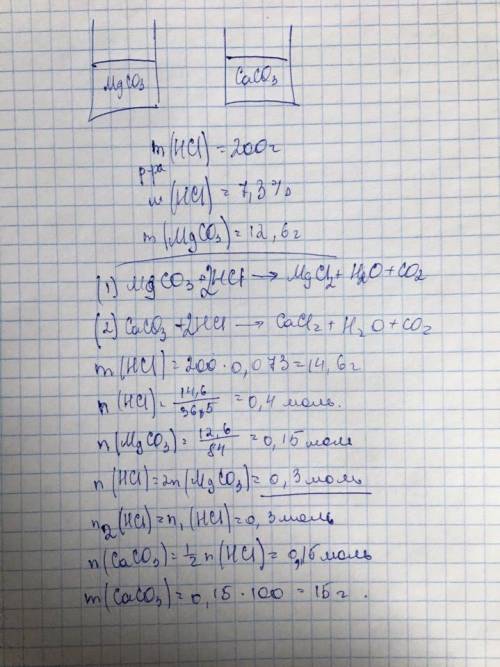 MgCO3 CaCO3
m (HCl) = 200г
р-ра
w (HCl) = 7,3%
m (MgCO3) = 12,6г
(1) MgCO3 + 2HCl → MgCl2 + H2O + CO2
(2) CaCO3 + 2HCl → CaCl2 + H2O + CO2
m (HCl) = 200 · 0,073 = 14,6г
n (HCl) = 14,6/36,5 = 0,4 моль.
n (MgCO3) = 12,6/84 = 0,15 моль
n (HCl) = 2n (MgCO3) = 0,3 моль
n2 (HCl) = n1 (HCl) = 0,3 моль
n (CaCO3) = 1/2 n (HCl) = 0,15 моль
m (CaCO3) = 0,15 · 100 = 15г.